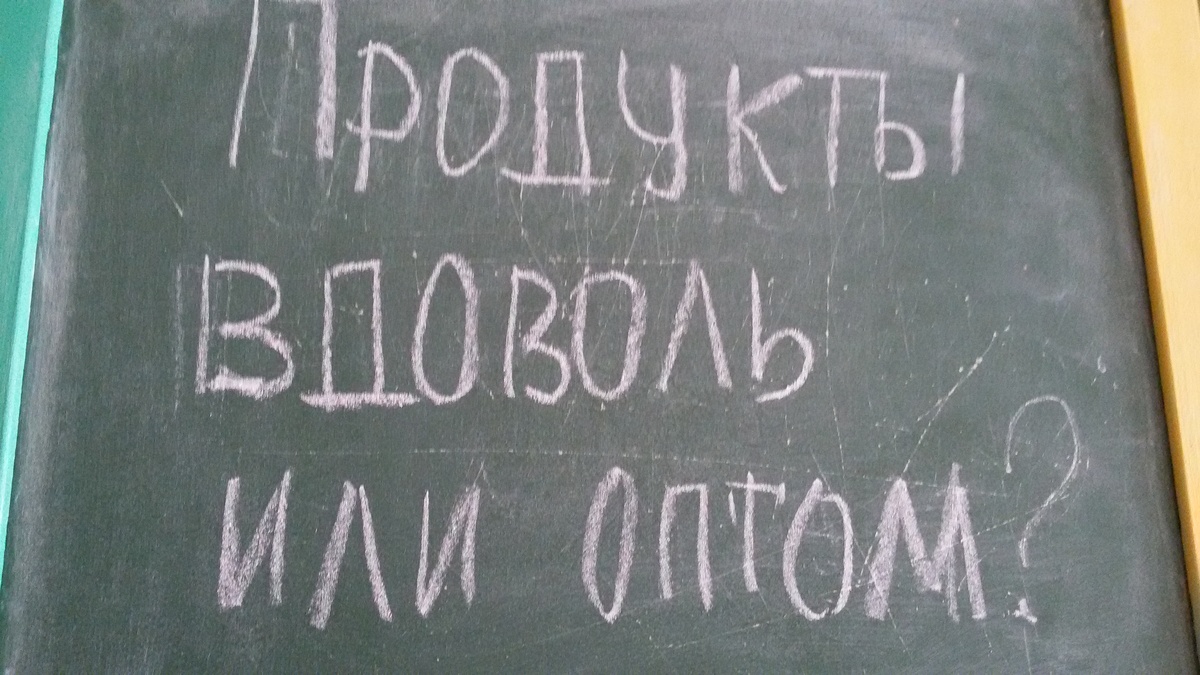 Продукты
вдоволь
или оптом?